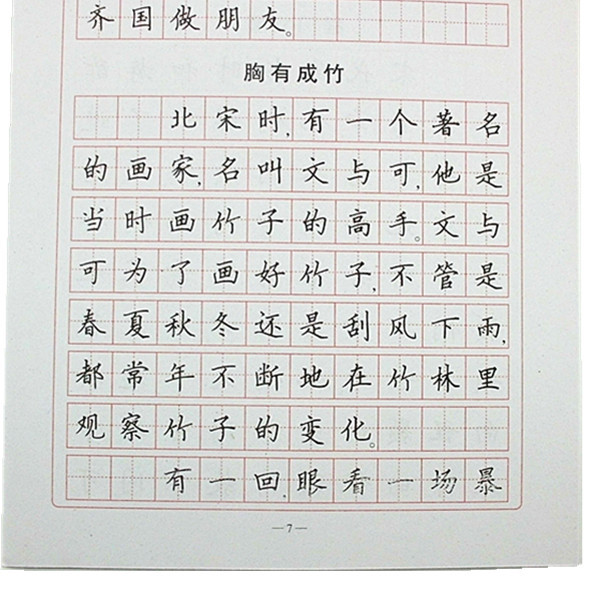 齐国做朋友。
胸有成竹
北宋时，有一个著名
的画家，名叫文与可，他是
当时画竹子的高手。文与
可为了画好竹子，不管是
春夏秋冬还是刮风下雨，
都常年不断地在竹林里
观察竹子的变化。
有一回，眼看一场暴
—7—